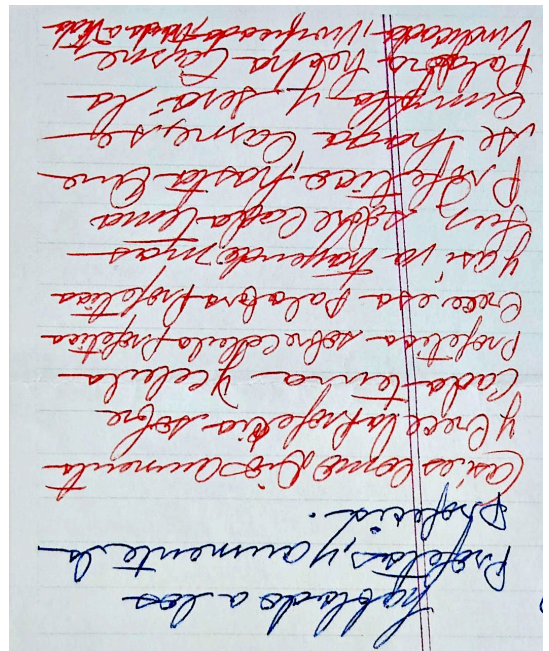 hablado a los
Profetas, y aumenta la
profecía.
Así es como Dios aumenta
y crece la Profecía sobre
Cada tema y celula
Profetica sobre celula profetica
Crece esa palabra Profetica
y así va trayendo mas
luz sobre cada tema
Profetico, hasta que
se haga Carne, se
cumpla y será la
Palabra hecha Carne,
Vindicada, Vivificada